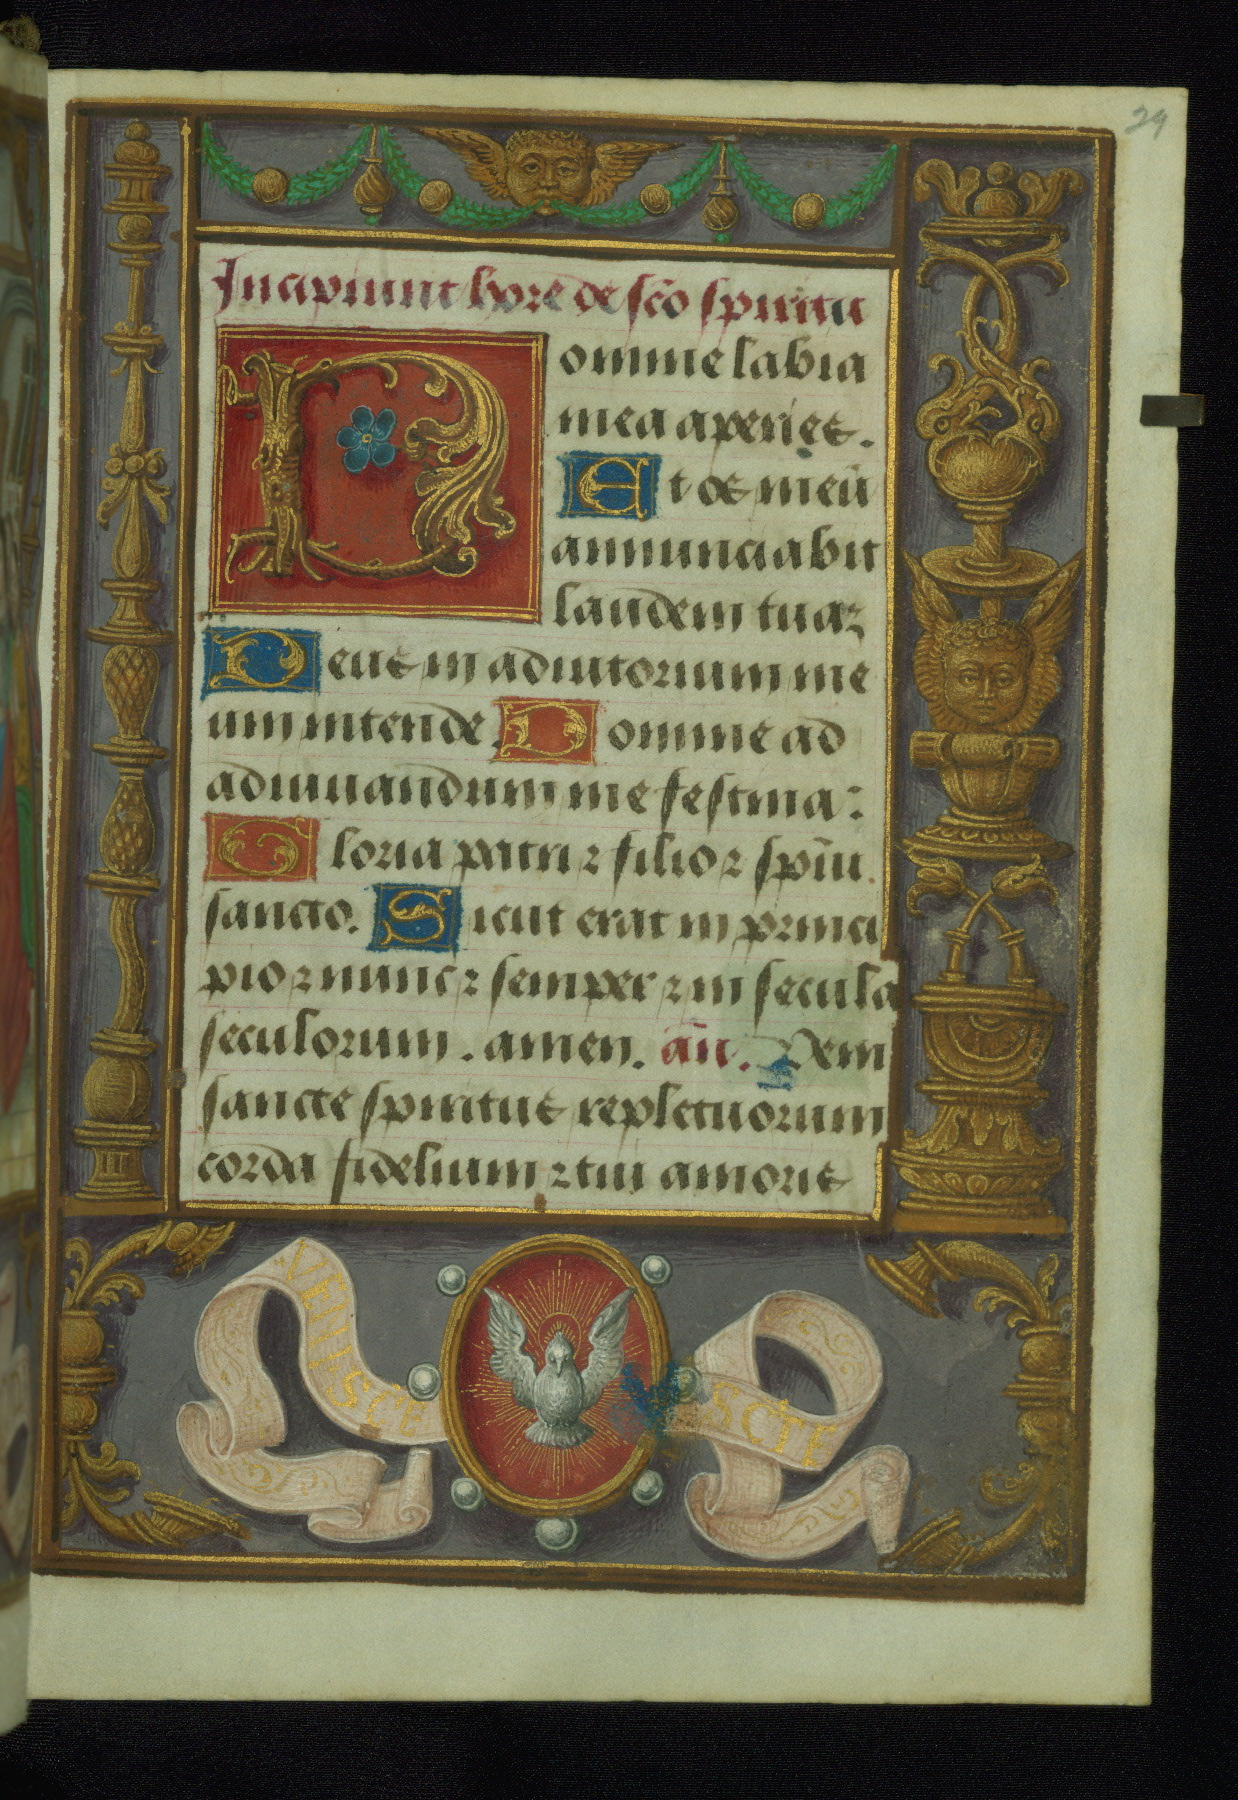 29
Incipiunt hore de sc̄o spiritu
Domine labia
mea aperies.
Et os meū
annunciabit
laudem tuaꝫ
Deus in adiutorium me
um intende. Domine ad
adiuuandum me festina:
Gloria patri ⁊ filio ⁊ spīui
sancto. Sicut erat in princi
pio ⁊ nunc ⁊ semper ⁊ in secula
seculorum. amen. an̄. Veni
sancte spiritus reple tuorum
corda fidelium ⁊ tui amoris
VENI·SC̄E
SCTE